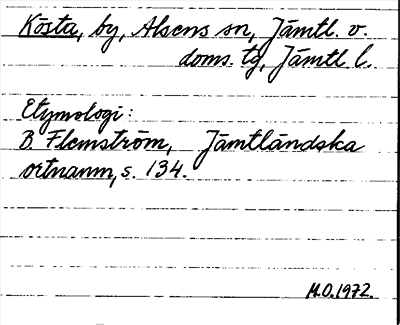 Kösta, by, Alsens sn, Jämtl. v.
doms. tg, Jämtl. l.
Etymologi:
B. Flemström, Jämtländska
ortnamn, s. 134.
M.O. 1972.